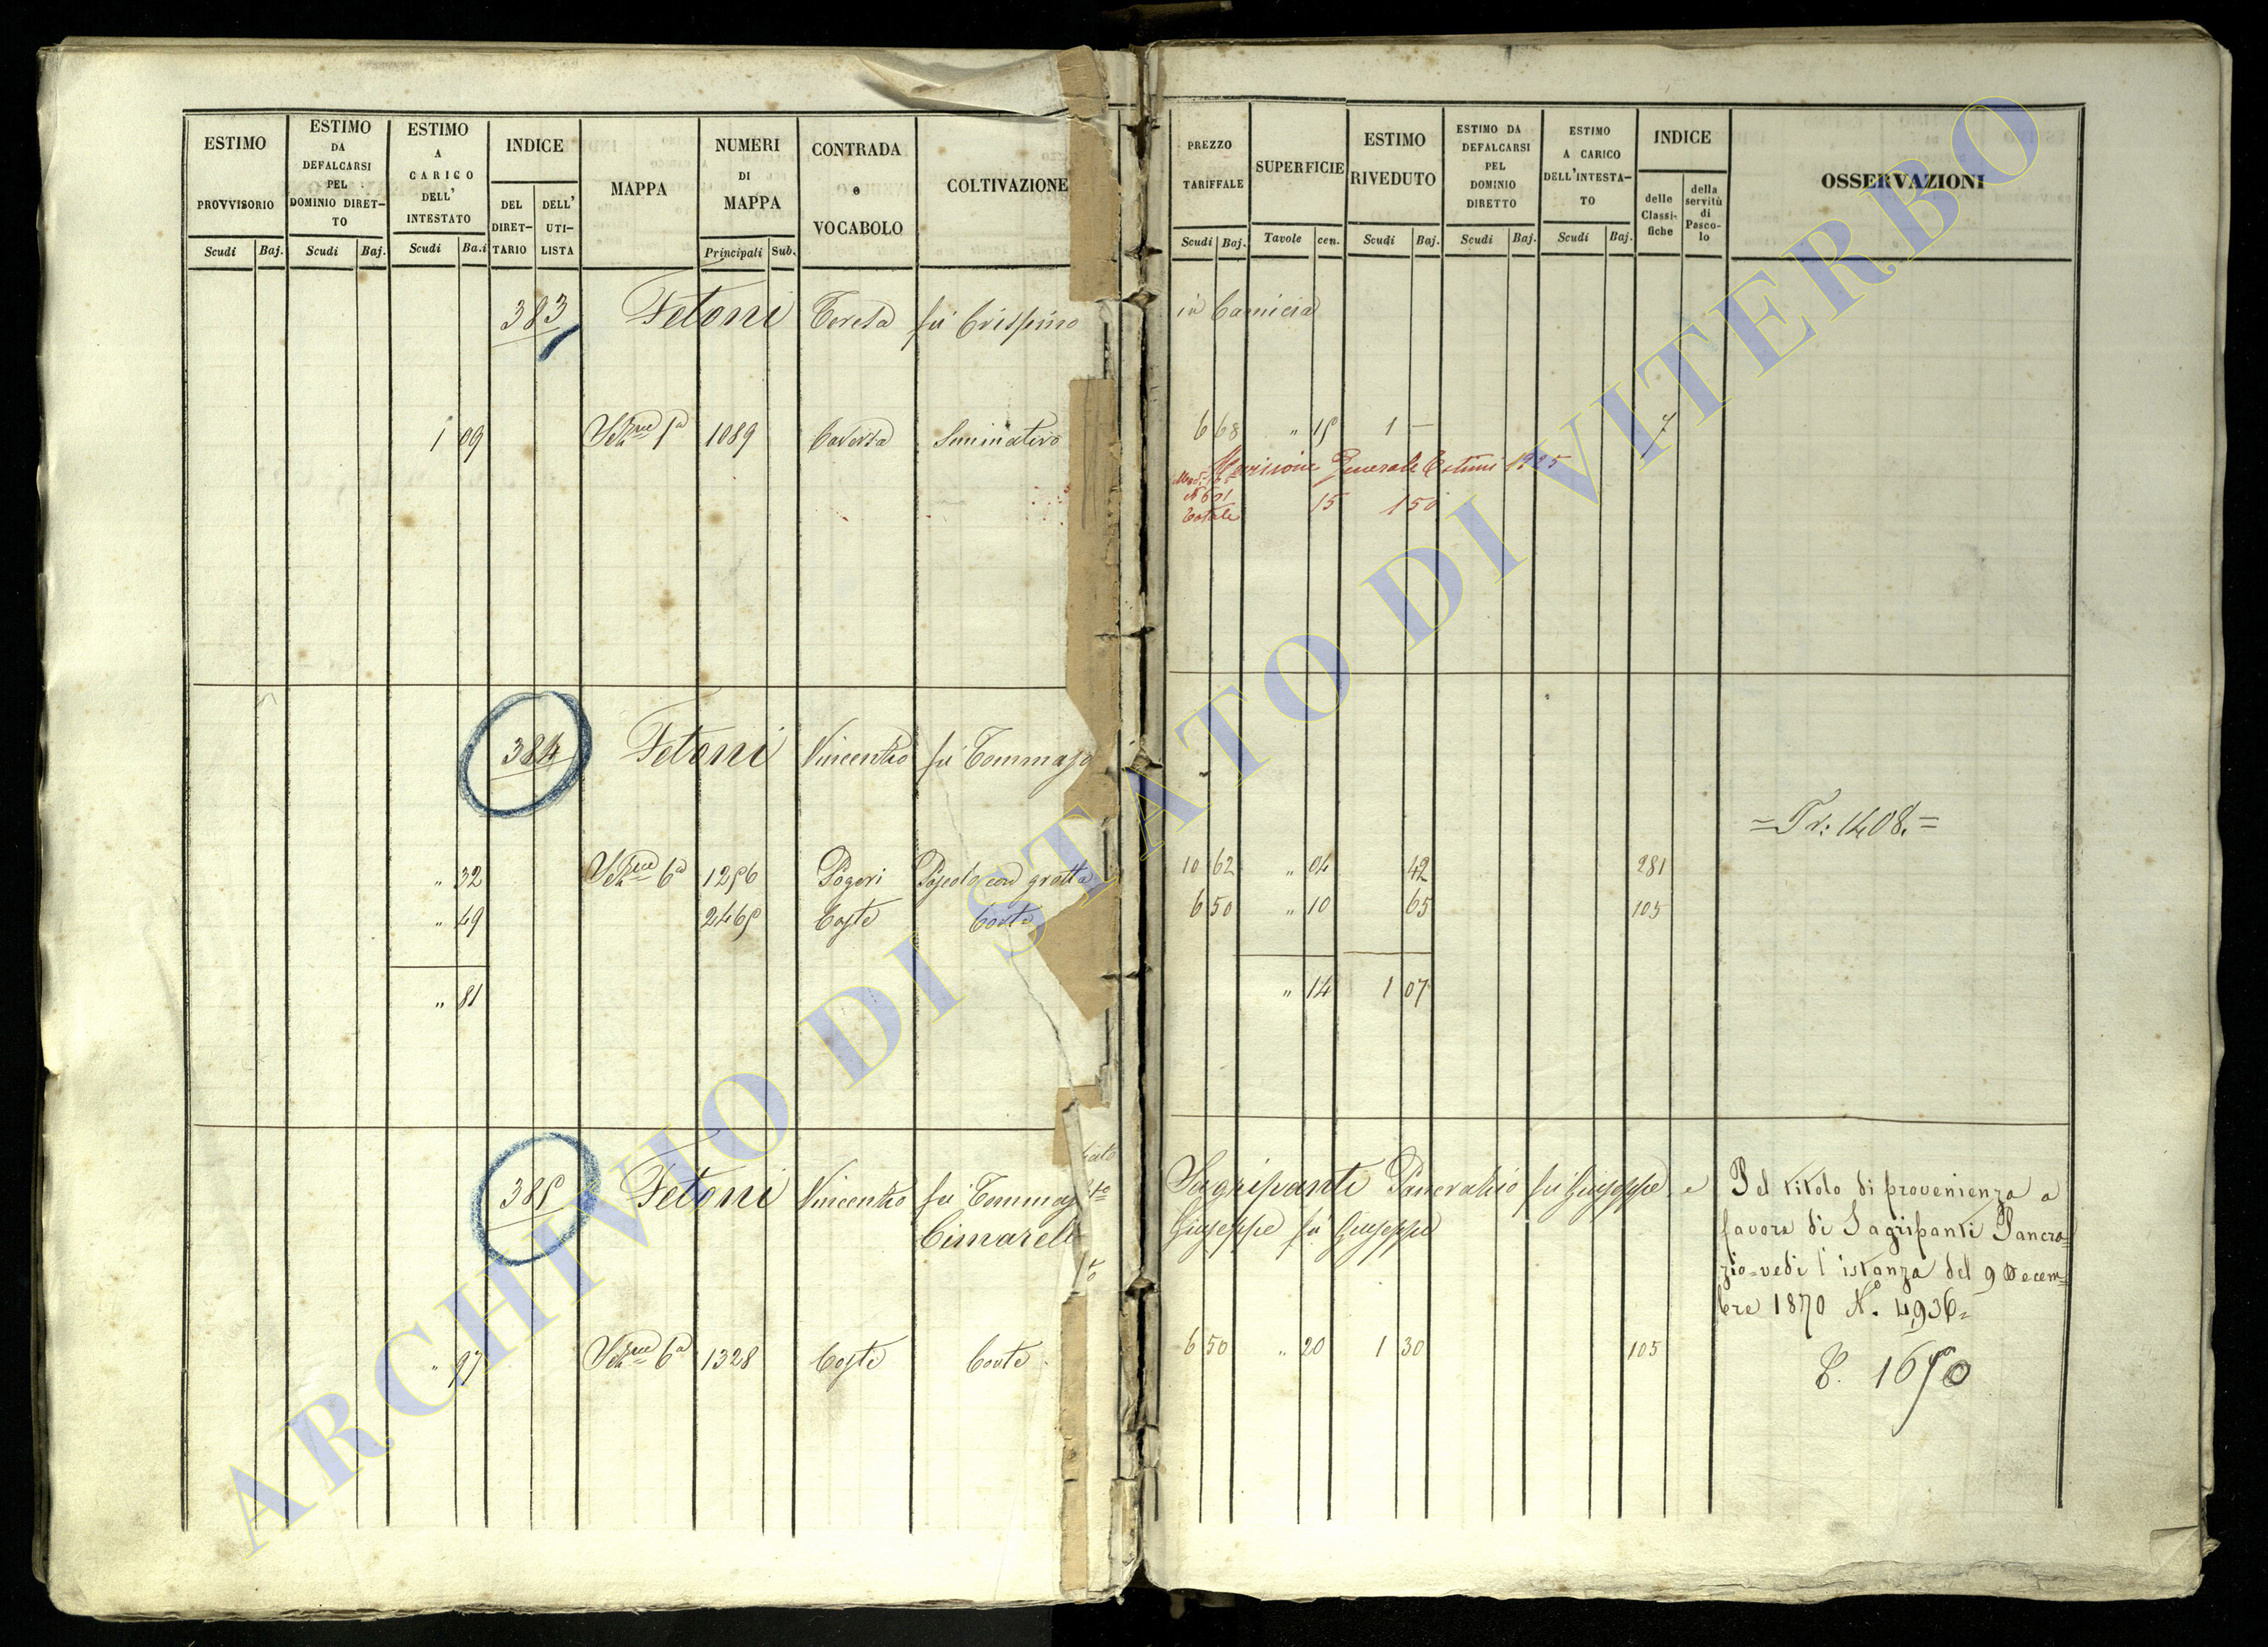 ESTIMO PROVVISORIO Scudi Baj.
ESTIMO DA DEFALCARSI PEL DOMINIO DIRET-TO Scudi Baj.
ESTIMO A CARICO DELL' INTESTATO Scudi Ba.i
INDICE DEL DIRET-TARIO DELL' UTI-LISTA
MAPPA
NUMERI DI MAPPA Principali Sub.
CONTRADA o VOCABOLO
COLTIVAZIONE
PREZZO TARIFFALE Scudi Baj.
SUPERFICIE Tavole cen.
ESTIMO RIVEDUTO Scudi Baj.
ESTIMO DA DEFALCARSI PEL DOMINIO DIRETTO Scudi Baj.
ESTIMO A CARICO DELL'INTESTA-TO Scudi Baj.
INDICE delle Classi-fiche della servitù di Pasco-lo
OSSERVAZIONI
383 Fetoni Teresa fu Crispino in Camicia
1 09 1089 Caversa Seminativo 6 68 " 15 1 — 7
Revisione Generale Estimi
Totale 15 1 50
384 Fetoni Vincenzo fu Tommaso
= Tr: 1408. =
" 32 6a 1256 Pogeri Pascolo con grotta 10 62 " 04 42 281
" 49 2465 Coste 6 50 " 10 65 105
" 81 " 14 1 07
385 Fetoni Vincenzo fu Tommas Sagripanti Pancrazio fu Giuseppe e
Cimarel Giuseppe fu Giuseppe
Pel titolo di provenienza a
favore di Sagripanti Pancra=
zio=vedi l'istanza del 9 Decem=
bre 1870 No. 4936=
" 97 6a 1328 Coste 6 50 " 20 1 30 105
1650
ARCHIVIO DI STATO DI VITERBO